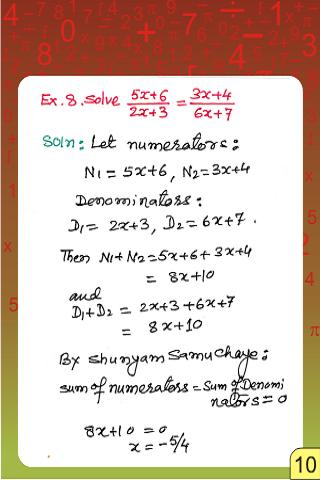 Ex.8. Solve 5x+6/2x+3 = 3x+4/6x+7
Soln: Let numerators:
N1 = 5x+6, N2=3x+4
Denominators:
D1= 2x+3, D2=6x+7.
Then N1+N2=5x+6+3x+4
= 8x+10
and
D1+D2 = 2x+3+6x+7
= 8x+10
By Shunyam Samuchaye:
sum of numerators = Sum of Denomi
nators = 0
8x+10 = 0
x = -5/4
10